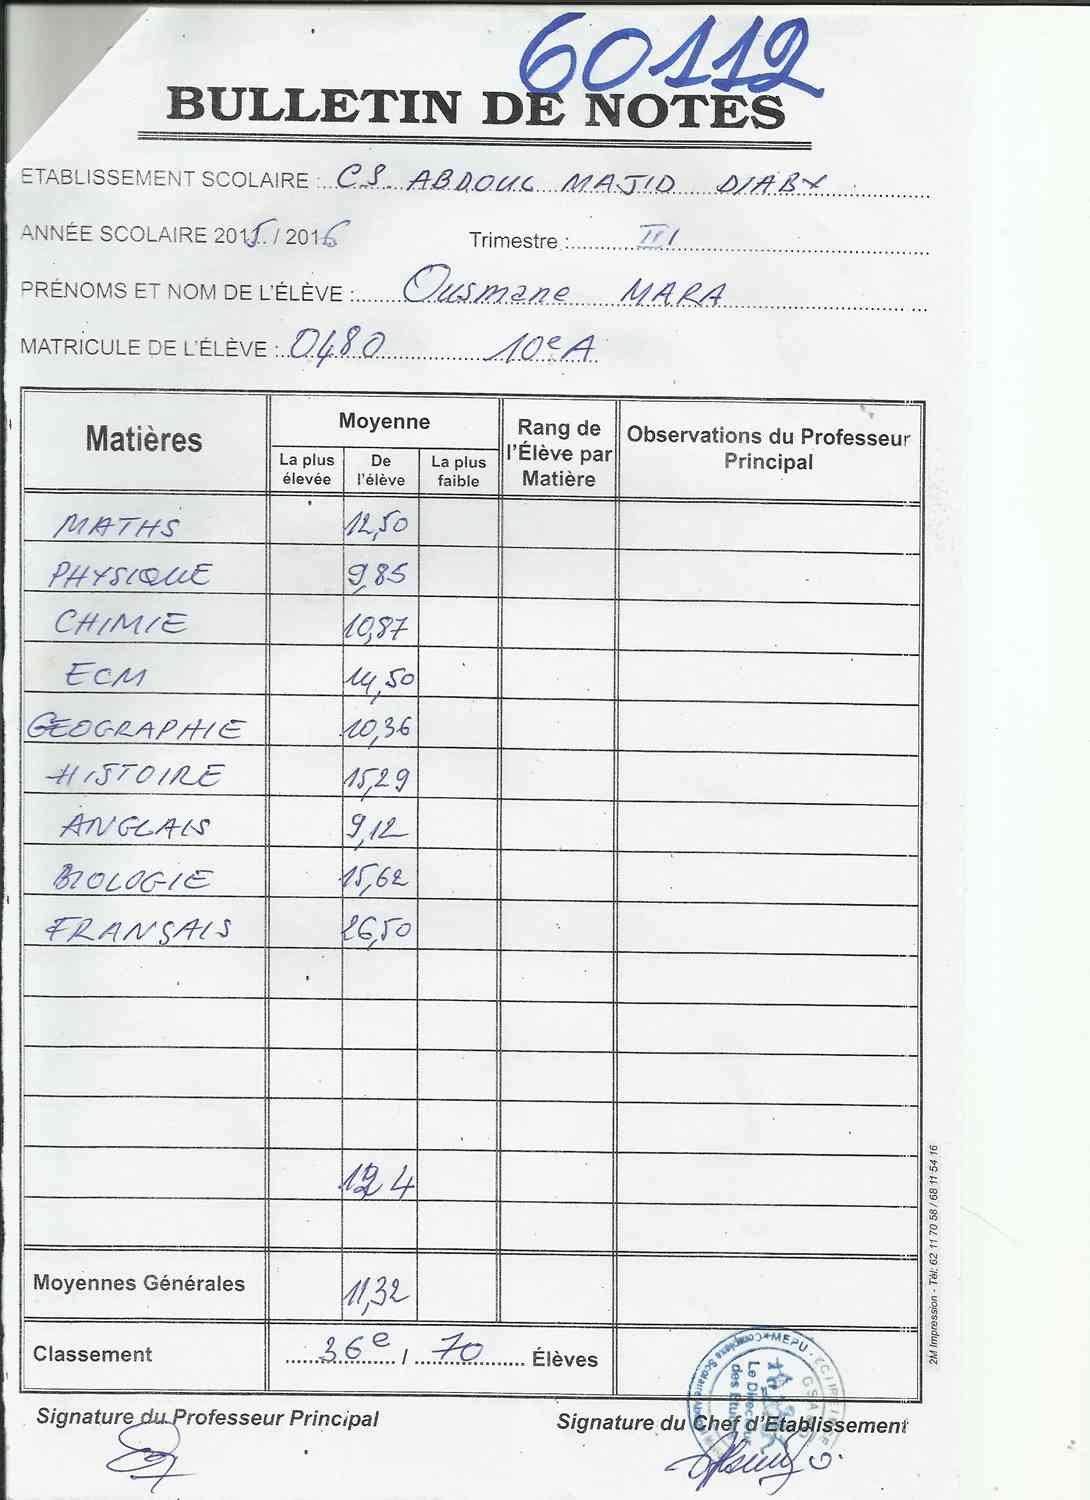 60112
BULLETIN DE NOTES
ETABLISSEMENT SCOLAIRE : C.S. ABDOUL MAJID DIABY
ANNÉE SCOLAIRE 2015 / 2016 Trimestre : III
PRÉNOMS ET NOM DE L'ÉLÈVE : Ousmane MARA
MATRICULE DE L'ÉLÈVE : 0480 10e A
Matières Moyenne Rang de l'Élève par Matière Observations du Professeur Principal
La plus élevée De l'élève La plus faible
MATHS 12,50
PHYSIQUE 9,85
CHIMIE 10,87
ECM 14,50
GEOGRAPHIE 10,36
HISTOIRE 15,29
ANGLAIS 9,12
BIOLOGIE 15,62
FRANÇAIS 26,50
124
Moyennes Générales 11,32
Classement 36e / 70 Élèves
Signature du Professeur Principal Signature du Chef d'Etablissement
Le Directeur
des Etudes
2M Impression - Tél: 62 11 70 58 / 68 11 54 16